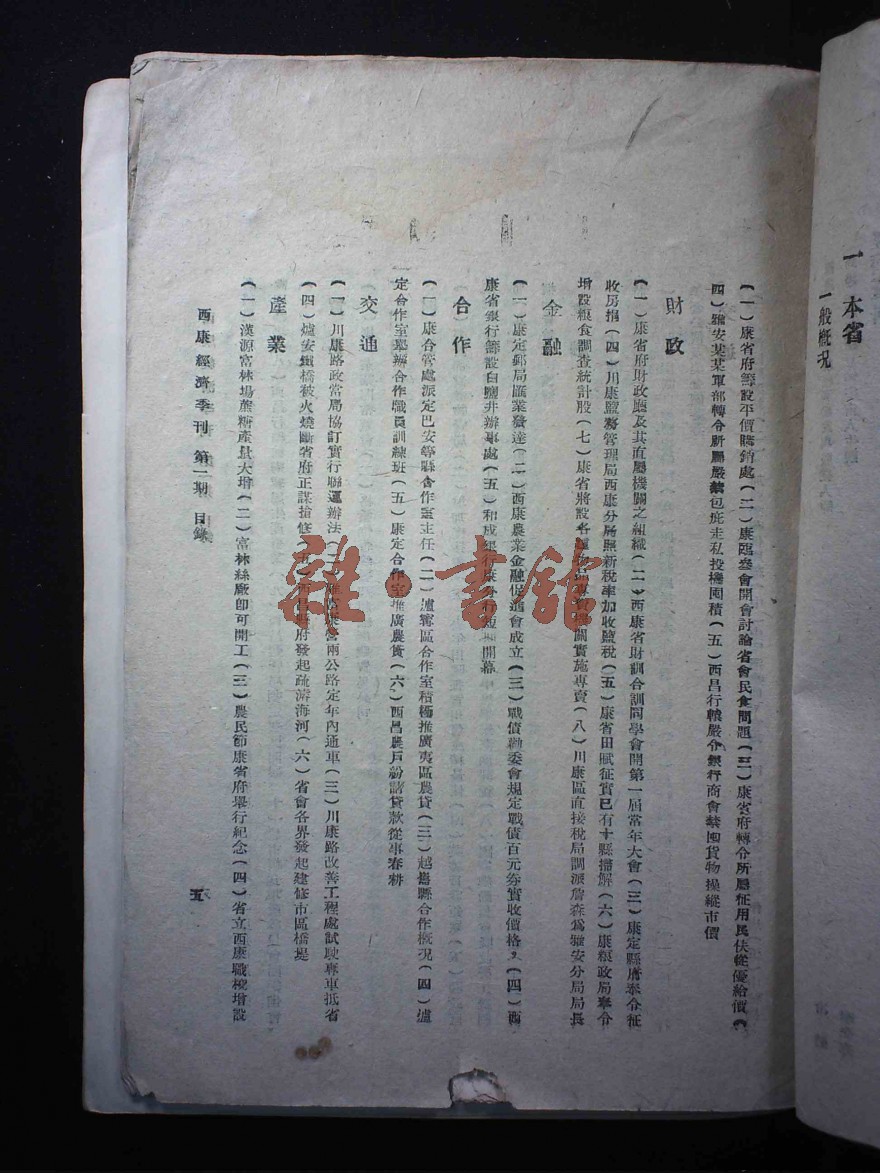 一 本省
一般概况
(一)康省府籌設平價購銷處(二)康臨叁會開會討論省會民食問題(三)康省府轉令所屬征用民伕從優給價(
四)雅安某某軍部轉令所屬嚴禁包庇走私投機囤積(五)西昌行轅嚴令銀行商會禁囤貨物操縱市價
財政
(一)康省府財政廳及其直屬機關之組織(二)西康省財訓合訓同學會開第一屆常年大會(三)康定縣府奉令征
收房捐(四)川康鹽務管理局西康分局照新稅率加收鹽稅(五)康省田賦征實已有十縣掃解(六)康糧政局奉令
增設糧食調查統計股(七)康省將設各種物品專賣機關實施專賣(八)川康區直接稅局調派詹森爲雅安分局局長
金融
(一)康定郵局匯業發達(二)西康農業金融促進會成立(三)戰債勸委會規定戰債百元券實收價格(四)西
康省銀行籌設白鹽井辦事處(五)和成銀行康分行開幕
合作
(一)康合管處派定巴安等縣合作室主任(二)瀘寧區合作室積極推廣夷區農貸(三)越嶲縣合作概況(四)瀘
定合作室舉辦合作職員訓練班(五)康定合作室推廣農貸(六)西昌農戶紛請貸款從事春耕
交通
(一)川康路政當局協訂實行聯運辦法(二)兩公路定年內通車(三)川康路改善工程處試駛專車抵省
(四)爐安鐵橋被火燒斷省府正謀搶修(五)西昌縣府發起疏濬海河(六)省會各界發起建修市區橋堤
產業
(一)漢源富林場蔗糖產量大增(二)富林絲廠卽可開工(三)農民節康省府舉行紀念(四)省立西康職校增設
西康經濟季刊 第二期 目錄
五
雜·書館